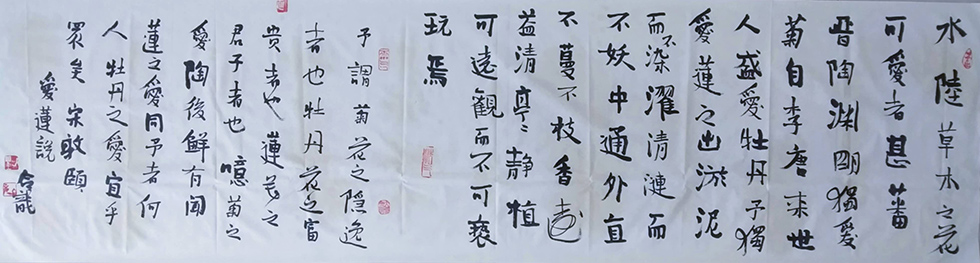 水陸草木之花
可愛者甚蕃
晋陶渊明獨愛
菊自李唐来世
人盛愛牡丹予獨
愛蓮之出淤泥
而不染濯清漣而
不妖中通外直
不蔓不枝香遠
益清亭亭静植
可遠觀而不可褻
玩焉
予謂菊花之隱逸
者也牡丹花之富
贵者也蓮花之
君子者也噫菊之
愛陶後鮮有闻
蓮之愛同予者何
人牡丹之愛宜乎
眾矣宋敦頤
愛蓮説